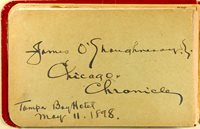 James O'Shaughnessy Jr.
Chicago.
Chronicle
Tampa Bay Hotel
May 11. 1898.